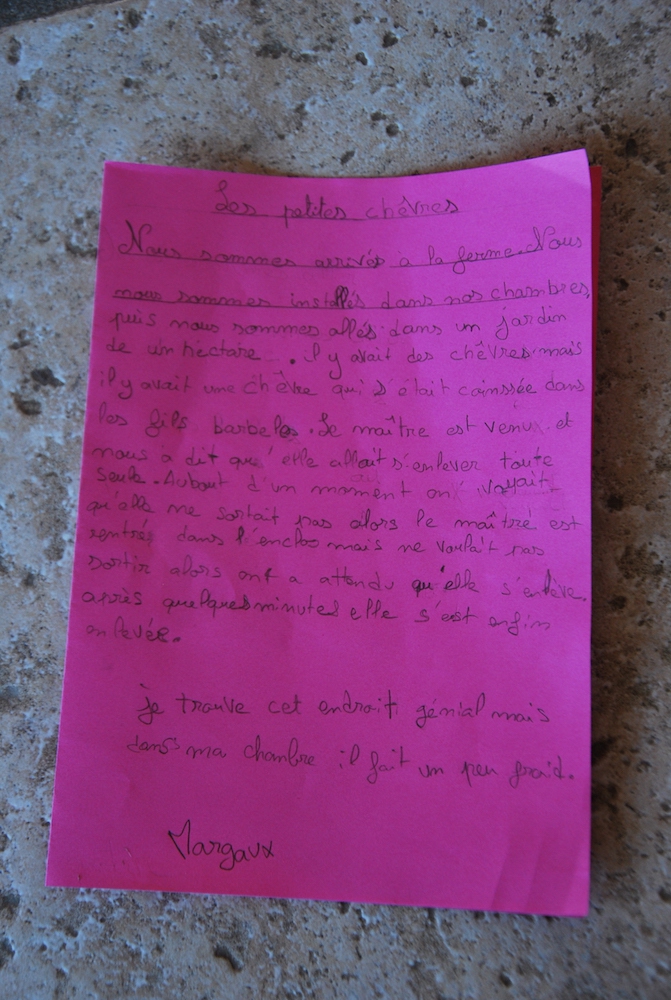 Les petites chèvres
Nous sommes arrivés à la ferme. Nous
nous sommes installés dans nos chambres,
puis nous sommes allés dans un jardin
de un hectare. Il y avait des chêvres mais
il y avait une chêvre qui s'était coinssée dans
les fils barbelés. Le maître est venu et
nous a dit qu'elle allait s'enlever toute
seule. Aubout d'un moment on voyait
qu'elle ne sortait pas alors le maître est
rentré dans l'enclos mais ne voulait pas
sortir alors ont a attendu qu'elle s'enlève.
après quelques minutes elle s'est enfin
enlevée.
je trouve cet endroit génial mais
dans ma chambre il fait un peu froid.
Margaux